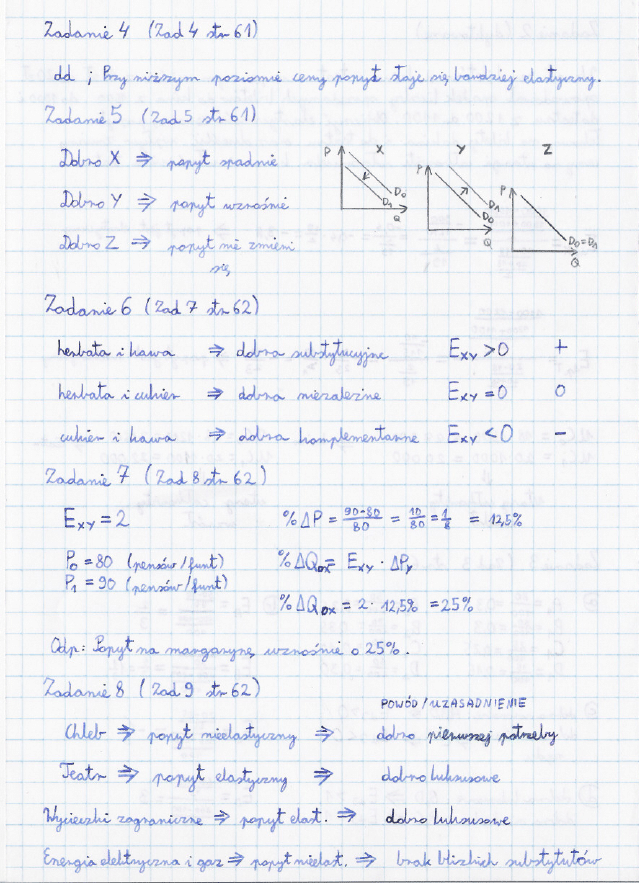 Zadanie 4 (Zad 4 str 61)
dd ; Przy niższym poziomie ceny popyt staje się bardziej elastyczny.
Zadanie 5 (Zad 5 str 61)
Dobro X ⇒ popyt spadnie
Dobro Y ⇒ popyt wzrośnie
Dobro Z ⇒ popyt nie zmieni
się
P X D₀ D₁ Q
P Y D₁ D₀ Q
P Z D₀=D₁ Q
Zadanie 6 (Zad 7 str 62)
herbata i kawa ⇒ dobra substytucyjne Exy > 0 +
herbata i cukier ⇒ dobra niezależne Exy = 0 0
cukier i kawa ⇒ dobra komplementarne Exy < 0 −
Zadanie 7 (Zad 8 str 62)
Exy = 2 %ΔP = 90-80/80 = 10/80 = 1/8 = 12,5%
P₀ = 80 (pensów/funt) %ΔQDX = Exy · ΔPy
P₁ = 90 (pensów/funt)
%ΔQDX = 2 · 12,5% = 25%
Odp: Popyt na margarynę wzrośnie o 25%.
Zadanie 8 (Zad 9 str 62)
POWÓD / UZASADNIENIE
Chleb ⇒ popyt nieelastyczny ⇒ dobro pierwszej potrzeby
Teatr ⇒ popyt elastyczny ⇒ dobro luksusowe
Wycieczki zagraniczne ⇒ popyt elast. ⇒ dobro luksusowe
Energia elektryczna i gaz ⇒ popyt nieelast. ⇒ brak bliskich substytutów